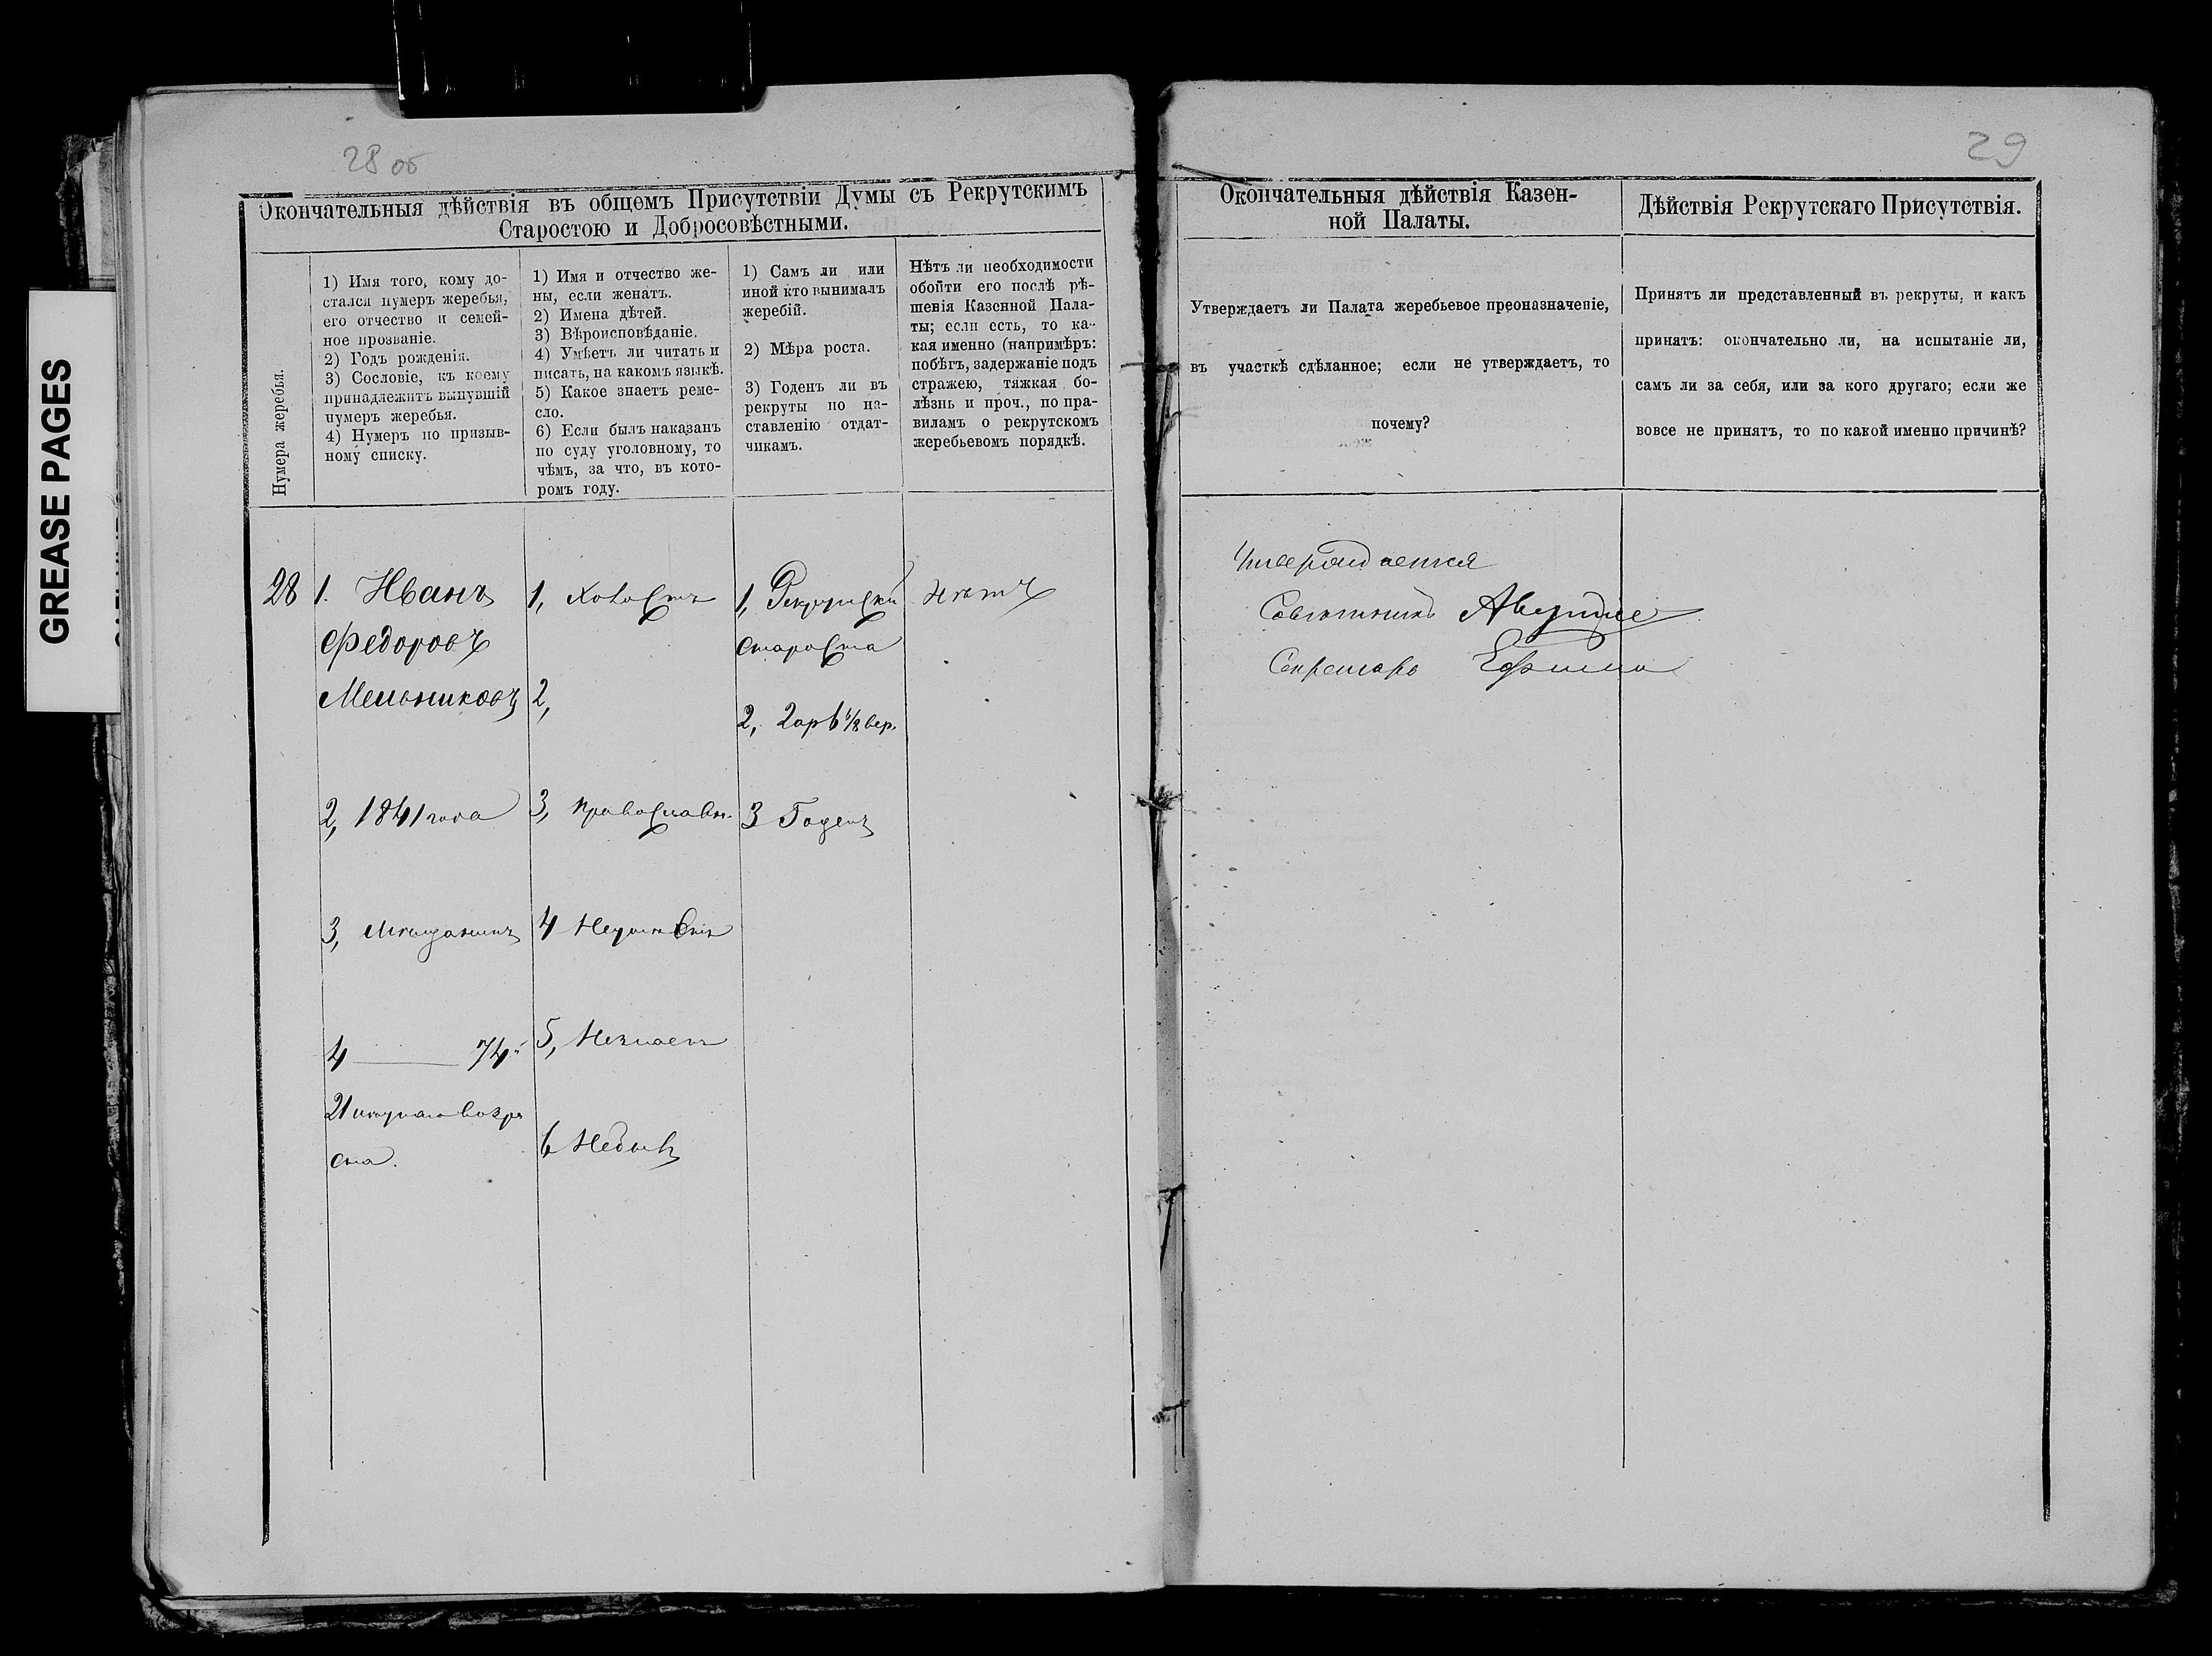 GREASE PAGES
28 об
29
Окончательныя дѣйствія въ общемъ Присутствіи Думы съ Рекрутскимъ
Старостою и Добросовѣстными.
Нумера жеребья.
1) Имя того, кому до-
стался нумеръ жеребья,
его отчество и семей-
ное прозваніе.
2) Годъ рожденія.
3) Сословіе, къ коему
принадлежитъ вынувшій
нумеръ жеребья.
4) Нумеръ по призыв-
ному списку.
1) Имя и отчество же-
ны, если женатъ.
2) Имена дѣтей.
3) Вѣроисповѣданіе.
4) Умѣетъ ли читать и
писать, на какомъ языкѣ.
5) Какое знаетъ реме-
сло.
6) Если былъ наказанъ
по суду уголовному, то
чѣмъ, за что, въ кото-
ромъ году.
1) Самъ ли или
иной кто вынималъ
жеребій.
2) Мѣра роста.
3) Годенъ ли въ
рекруты по на-
ставленію отдат-
чикамъ.
Нѣтъ ли необходимости
обойти его послѣ рѣ-
шенія Казенной Пала-
ты; если есть, то ка-
кая именно (напримѣръ:
побѣгъ, задержаніе подъ
стражею, тяжкая бо-
лѣзнь и проч., по пра-
виламъ о рекрутскомъ
жеребьевомъ порядкѣ.
Окончательныя дѣйствія Казен-
ной Палаты.
Утверждаетъ ли Палата жеребьевое преоназначеніе,
въ участкѣ сдѣланное; если не утверждаетъ, то
почему?
Дѣйствія Рекрутскаго Присутствія.
Принятъ ли представленный въ рекруты, и какъ
принятъ: окончательно ли, на испытаніе ли,
самъ ли за себя, или за кого другаго; если же
вовсе не принятъ, то по какой именно причинѣ?
28
1. Иванъ
Федоровъ
Мельниковъ
2, 1841 года
3, Мѣщанинъ
4 — 74й
21 лѣтняго возра
ста.
1, Холостъ
2,
3, Православн.
4 Неумѣетъ
5, Незнаетъ
6 Небылъ
1, Рекрутскій
староста
2, 2 ар 6 1/8 вер.
3 Годенъ
Нѣтъ
Утверждается
Совѣтникъ
Секретарь